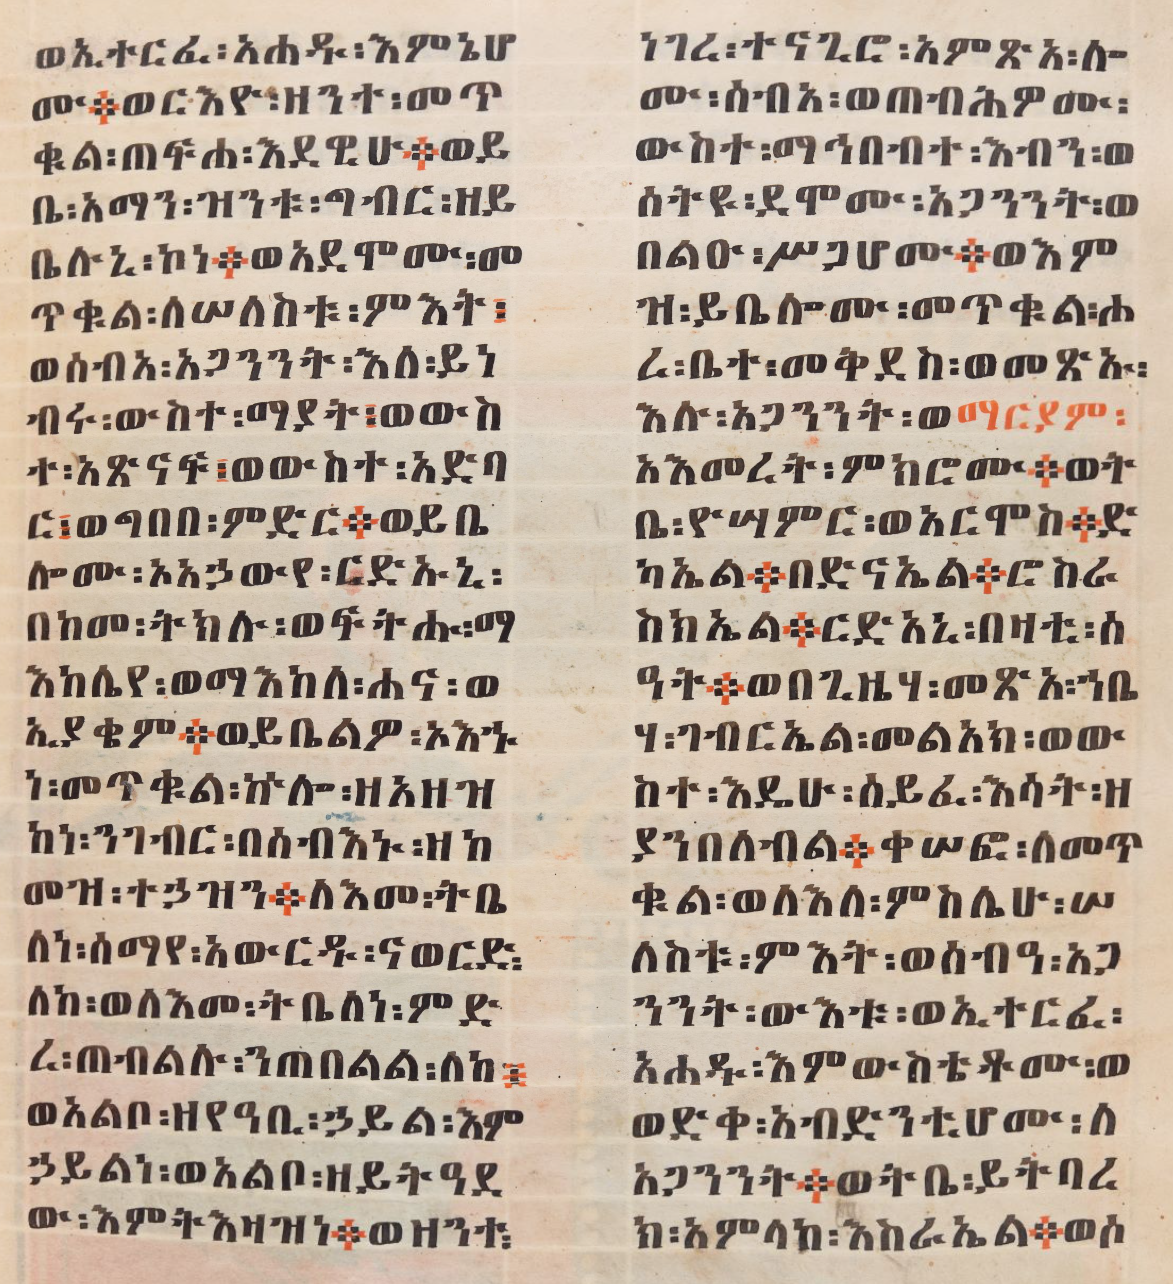 ወኢተርፈ፡አሐዱ፡እምኔሆ
ሙ።ወርእዮ፡ዘንተ፡መጥ
ቁል፡ጠፍሐ፡እደዊሁ።ወይ
ቤ፡አማን፡ዝንቱ፡ግብር፡ዘይ
ቤሉኒ፡ኮነ።ወአደሞሙ፡መ
ጥቁል፡ለሠለስቱ፡ምእት፤
ወሰብአ፡አጋንንት፡እለ፡ይነ
ብሩ፡ውስተ፡ማያት፤ወውስ
ተ፡አጽናፍ፤ወውስተ፡አድባ
ር፤ወግበበ፡ምድር።ወይቤ
ሎሙ፡ኦአኃውየ፡ርድኡኒ፡
በከመ፡ትክሉ፡ወፍትሑ፡ማ
እከሌየ፡ወማእከለ፡ሐና፡ወ
ኢያቄም።ወይቤልዎ፡ኦእኁ
ነ፡መጥቁል፡ኵሎ፡ዘአዘዝ
ከነ፡ንገብር፡በሰብእኑ፡ዘከ
መዝ፡ተኃዝን።ለእመ፡ትቤ
ለነ፡ሰማየ፡አውርዱ፡ናወርድ፡
ለከ፡ወለእመ፡ትቤለነ፡ምድ
ረ፡ጠብልሉ፡ንጠበልል፡ለከ፤
ወአልቦ፡ዘየዓቢ፡ኃይል፡እም
ኃይልነ፡ወአልቦ፡ዘይትዓደ
ው፡እምትእዛዝነ።ወዝንተ፡
ነገረ፡ተናጊሮ፡አምጽአ፡ሎ
ሙ፡ሰብአ፡ወጠብሕዎሙ፡
ውስተ፡ማኅበብተ፡እብን፡ወ
ሰትዩ፡ደሞሙ፡አጋንንት፡ወ
በልዑ፡ሥጋሆሙ።ወእም
ዝ፡ይቤሎሙ፡መጥቁል፡ሐ
ረ፡ቤተ፡መቅደስ፡ወመጽኡ፡
እሉ፡አጋንንት፡ወማርያም፡
አእመረት፡ምክሮሙ።ወት
ቤ፡ዮሣምር፡ወአርሞስ።ድ
ካኤል።በድናኤል።ሮስራ
ስክኤል።ርድአኒ፡በዛቲ፡ሰ
ዓት።ወበጊዜሃ፡መጽአ፡ኀቤ
ሃ፡ገብርኤል፡መልአክ፡ወው
ስተ፡እዴሁ፡ሰይፈ፡እሳት፡ዘ
ያንበለብል።ቀሠፎ፡ለመጥ
ቁል፡ወለእለ፡ምስሌሁ፡ሠ
ለስቱ፡ምእት፡ወሰብዓ፡አጋ
ንንት፡ውእቱ፡ወኢተርፈ፡
አሐዱ፡እምውስቴቶሙ፡ወ
ወድቀ፡አብድንቲሆሙ፡ለ
አጋንንት።ወትቤ፡ይትባረ
ክ፡አምላከ፡እስራኤል።ወሰ